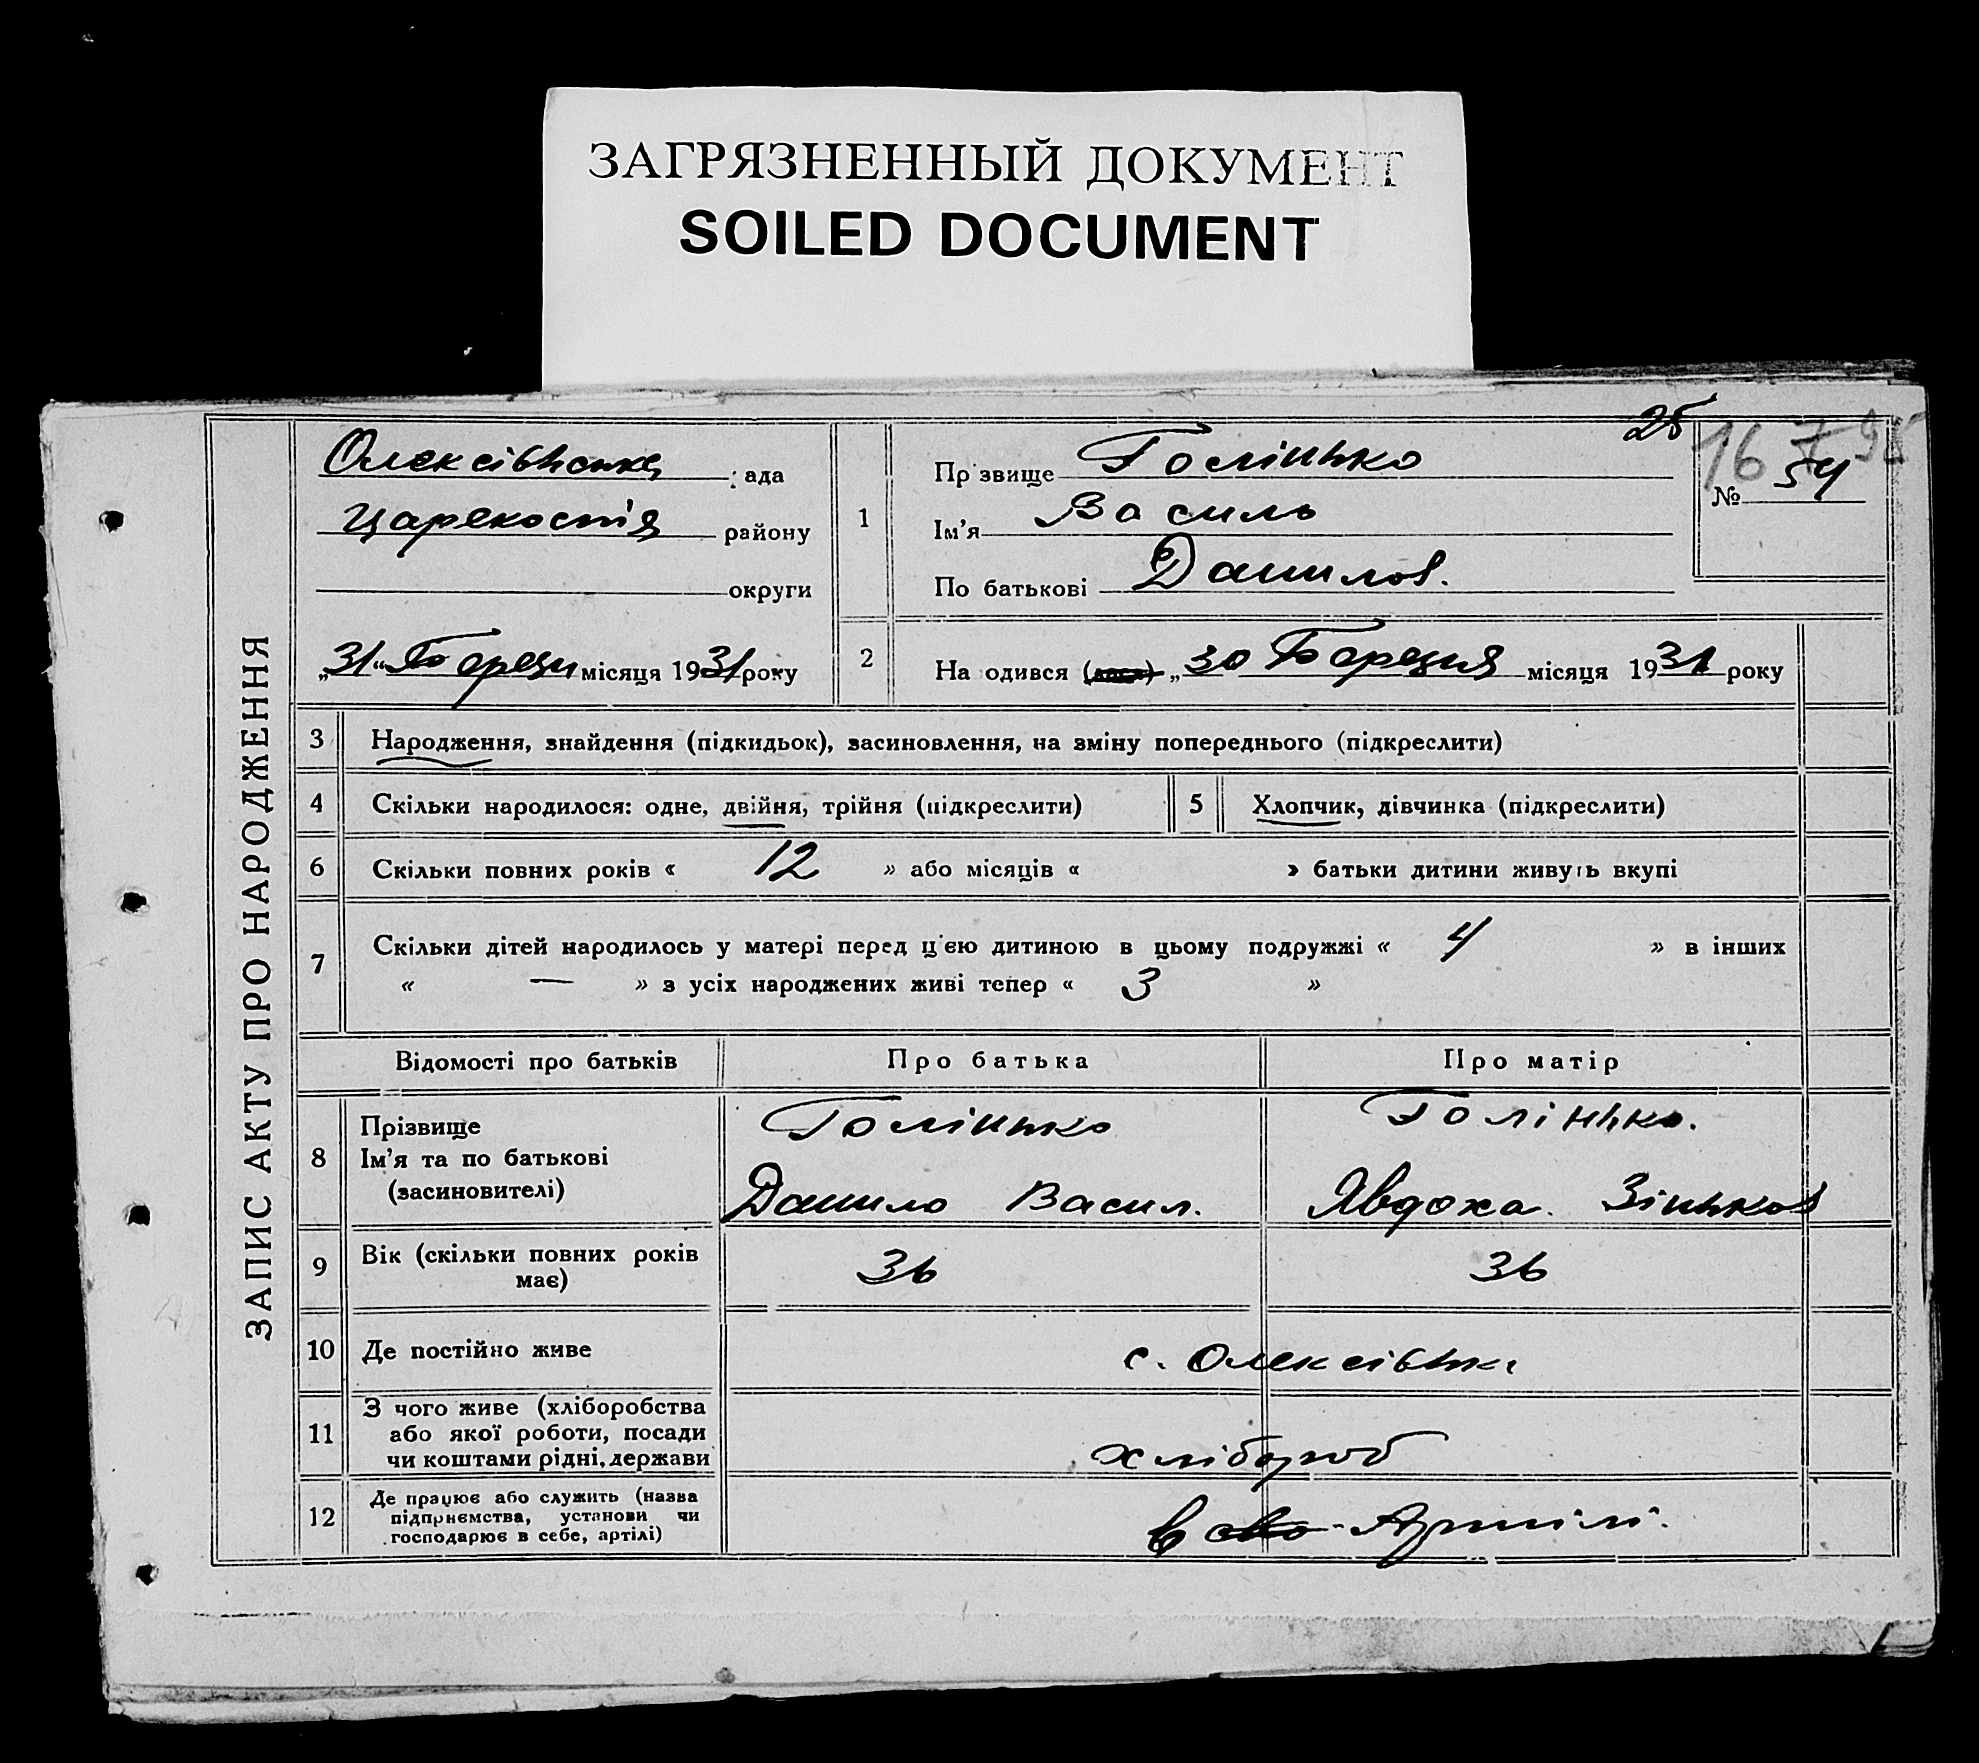 ЗАГРЯЗНЕННЫЙ ДОКУМЕНТ
SOILED DOCUMENT
ЗАПИС АКТУ ПРО НАРОДЖЕННЯ
Олексівська рада
району
округи
„31“ Березня місяця 1931 року
25
1 Прізвище Голінько
Ім'я Василь
По батькові Данилов.
16795
№ 54
2 Народився „30 Березня місяця 1931 року
3 Народження, знайдення (підкидьок), засиновлення, на зміну попереднього (підкреслити)
4 Скільки народилося: одне, двійня, трійня (підкреслити)
5 Хлопчик, дівчинка (підкреслити)
6 Скільки повних років « 12 » або місяців « » батьки дитини живуть вкупі
7 Скільки дітей народилось у матері перед цією дитиною в цьому подружжі « 4 » в інших
« — » з усіх народжених живі тепер « 3 »
Відомості про батьків Про батька Про матір
8 Прізвище Голінько Голінько.
Ім'я та по батькові
(засиновителі) Данило Васил. Явдоха Зіньков
9 Вік (скільки повних років 36 36
має)
10 Де постійно живе с. Олексівка
11 З чого живе (хліборобства
або якої роботи, посади
чи коштами рідні, держави хлібороб
12 Де працює або служить (назва
підприємства, установи чи
господарює в себе, артілі) в Артілі.